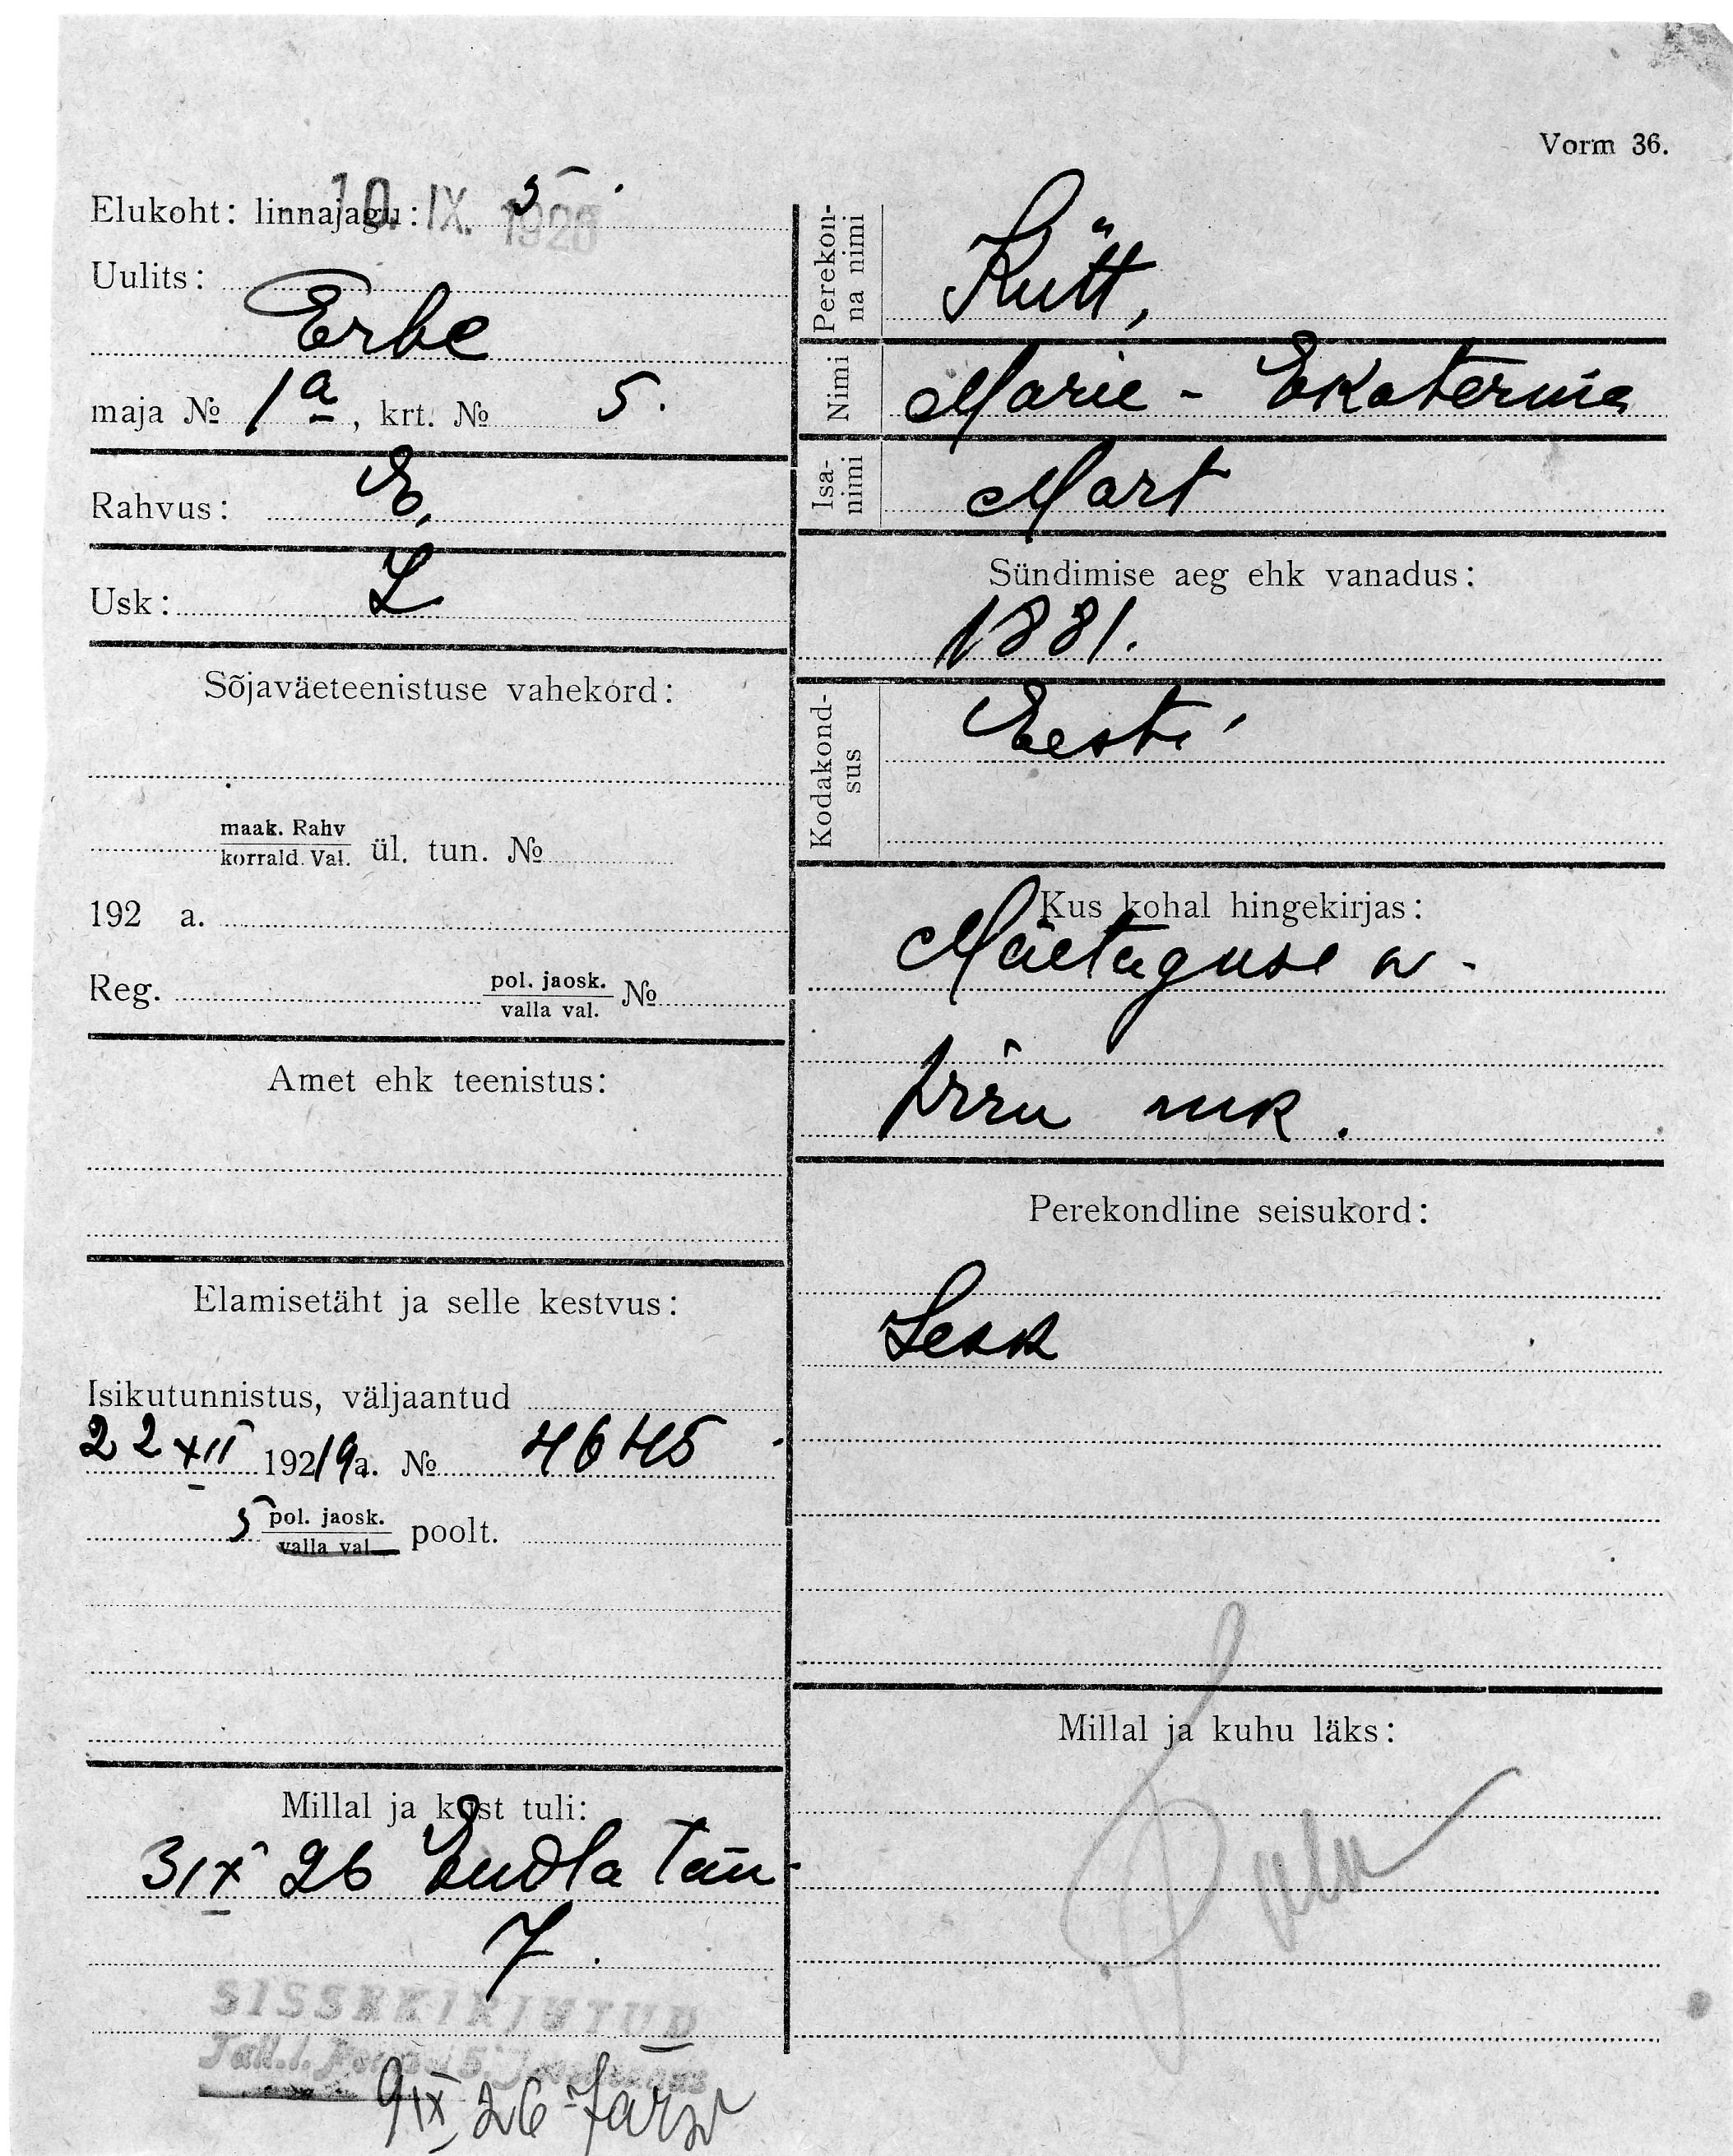 Vorm 36.
10. IX. 1926
Elukoht: linnajagu: 5.
Uulits:
Erbe
maja № 1a, krt. № 5.
Rahvus: E.
Usk: L
Sõjaväeteenistuse vahekord:
maak. Rahv
korrald. Val. ül. tun. №
192 a.
Reg. pol. jaosk.
valla val. №
Amet ehk teenistus:
Elamisetäht ja selle kestvus:
Isikutunnistus, väljaantud
22 XII 1921/9a. № 4645
5 pol. jaosk.
valla val. poolt.
Millal ja kust tuli:
3 IX 26 Endla tän.
7.
SISSEKIRJUTUD
9 IX 26 Järw
Perekon-
na nimi
Kütt,
Nimi Marie - Ekaterina
Isa-
nimi Mart
Sündimise aeg ehk vanadus:
1881.
Kodakond-
sus
Eesti
Kus kohal hingekirjas:
Mäetaguse w.
Wiru mk.
Perekondline seisukord:
Lesk
Millal ja kuhu läks: